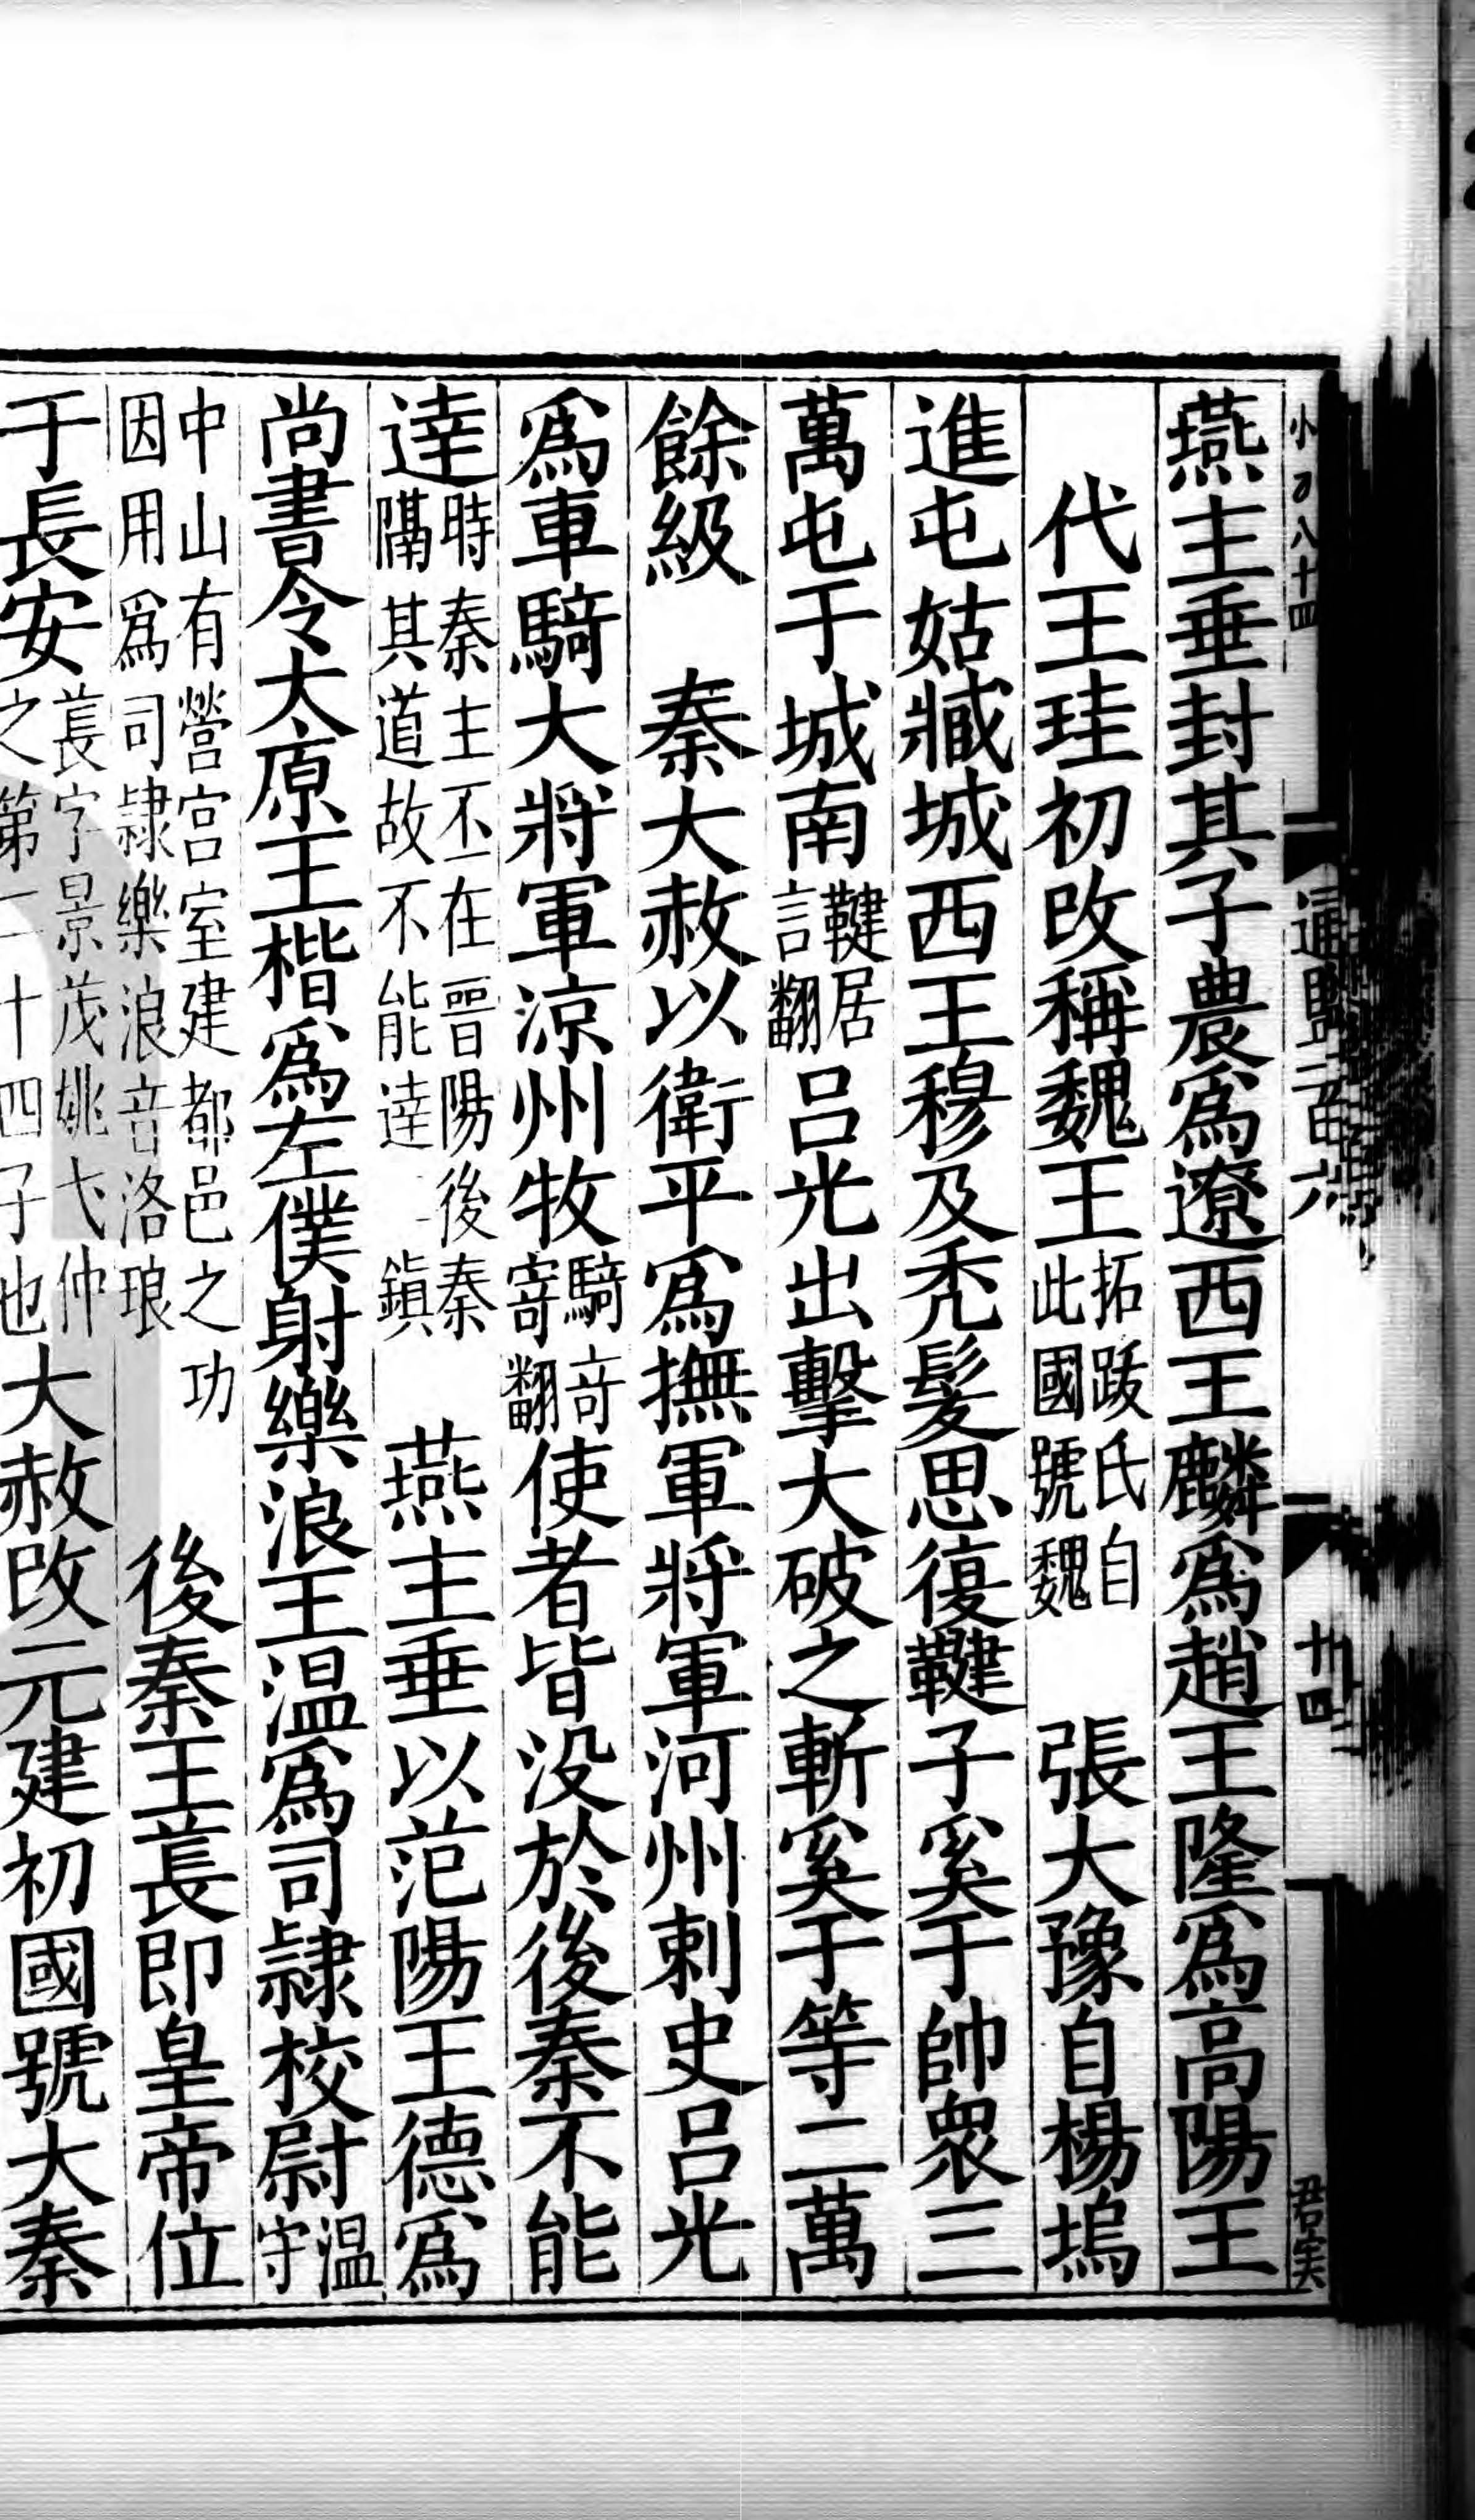 燕主垂封其子農爲遼西王麟爲趙王隆爲高陽王
代王珪初改稱魏王拓跋氏自此國號魏 張大豫自楊塢
進屯姑臧城西王穆及秃髮思復鞬子奚于帥衆三
萬屯于城南鞬居言翻吕光出擊大破之斬奚于等二萬
餘級 秦大赦以衛平爲撫軍將軍河州刺史吕光
爲車騎大將軍涼州牧騎奇寄翻使者皆没於後秦不能
達時秦主丕在晉陽後秦隔其道故不能達 鎮 燕主垂以范陽王德爲
尚書令太原王楷爲左僕射樂浪王温爲司隸校尉温守
中山有營宫室建都邑之功因用爲司隸樂浪音洛琅 後秦王萇即皇帝位
于長安萇字景茂姚弋仲之第二十四子也大赦改元建初國號大秦
通鑑一百六
廿四
君実